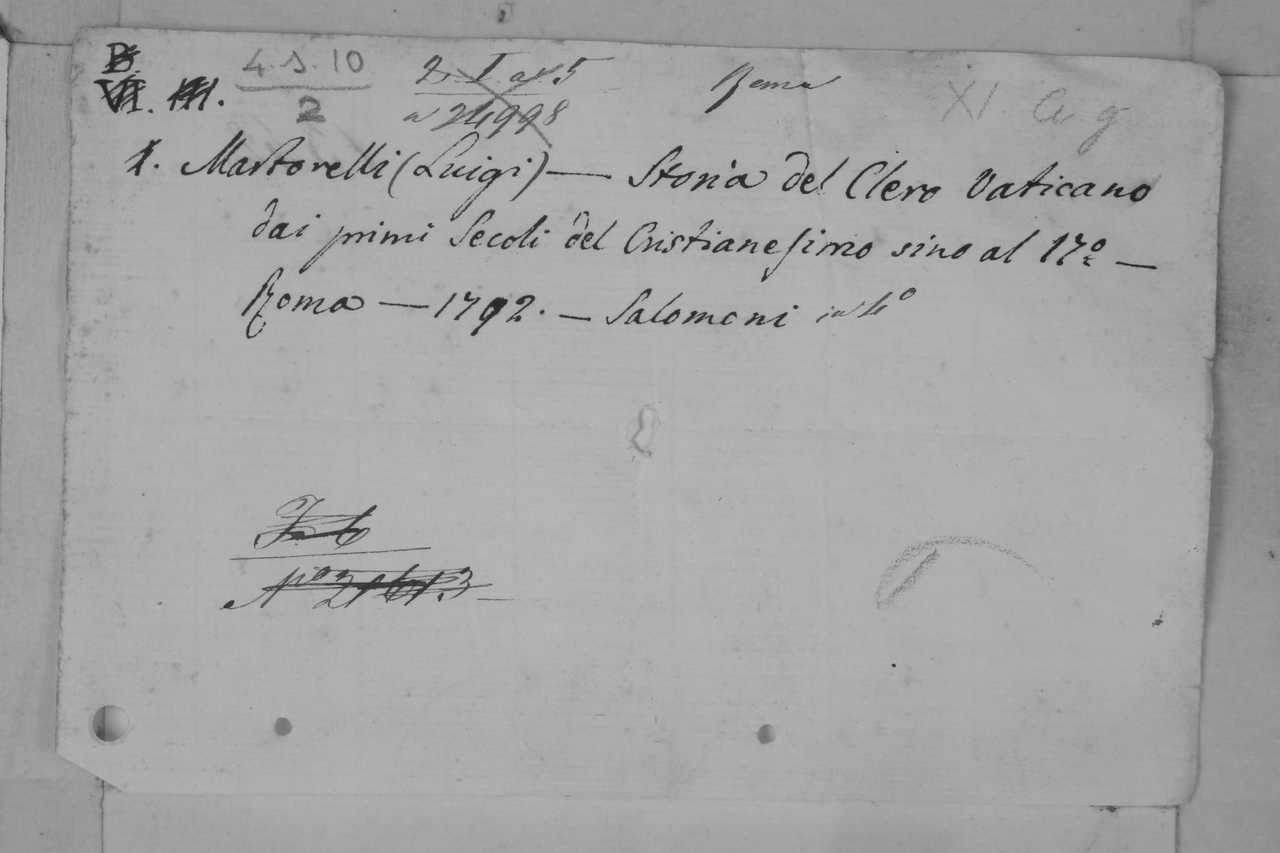 B
VI. III. 4.S.10 2. I. a. 5 Roma XI a g
2 a 24998
1. Martorelli (Luigi) — Storia del Clero Vaticano
dai primi Secoli del Cristianesimo sino al 17º —
Roma — 1792. — Salomoni in 4º
Nº